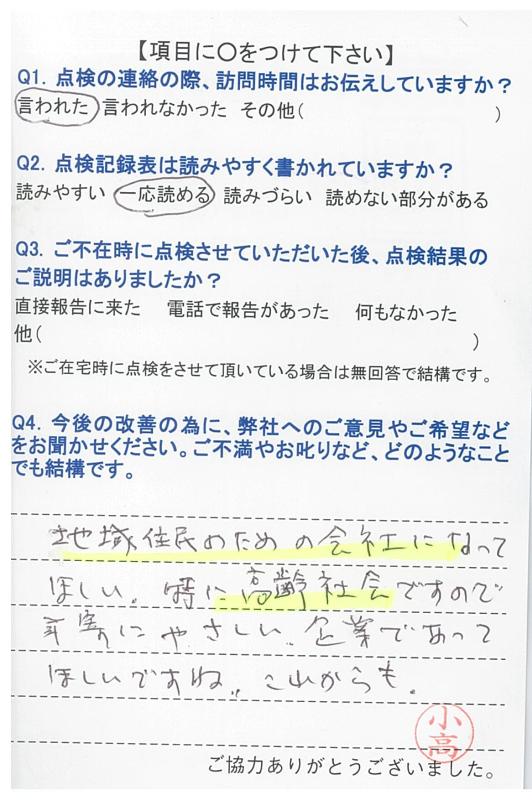 【項目に〇をつけて下さい】
Q1. 点検の連絡の際、訪問時間はお伝えしていますか？
言われた 言われなかった その他( )
Q2. 点検記録表は読みやすく書かれていますか？
読みやすい 一応読める 読みづらい 読めない部分がある
Q3. ご不在時に点検させていただいた後、点検結果の
ご説明はありましたか？
直接報告に来た 電話で報告があった 何もなかった
他( )
※ご在宅時に点検をさせて頂いている場合は無回答で結構です。
Q4. 今後の改善の為に、弊社へのご意見やご希望など
をお聞かせください。ご不満やお叱りなど、どのようなこと
でも結構です。
地域住民のための会社になって
ほしい。特に高齢社会ですので
年寄にやさしい企業であって
ほしいですね。これからも。
小高
ご協力ありがとうございました。